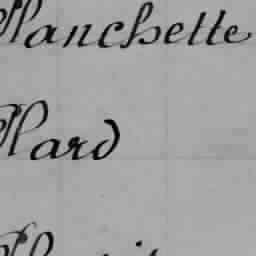 Planchette
Plard